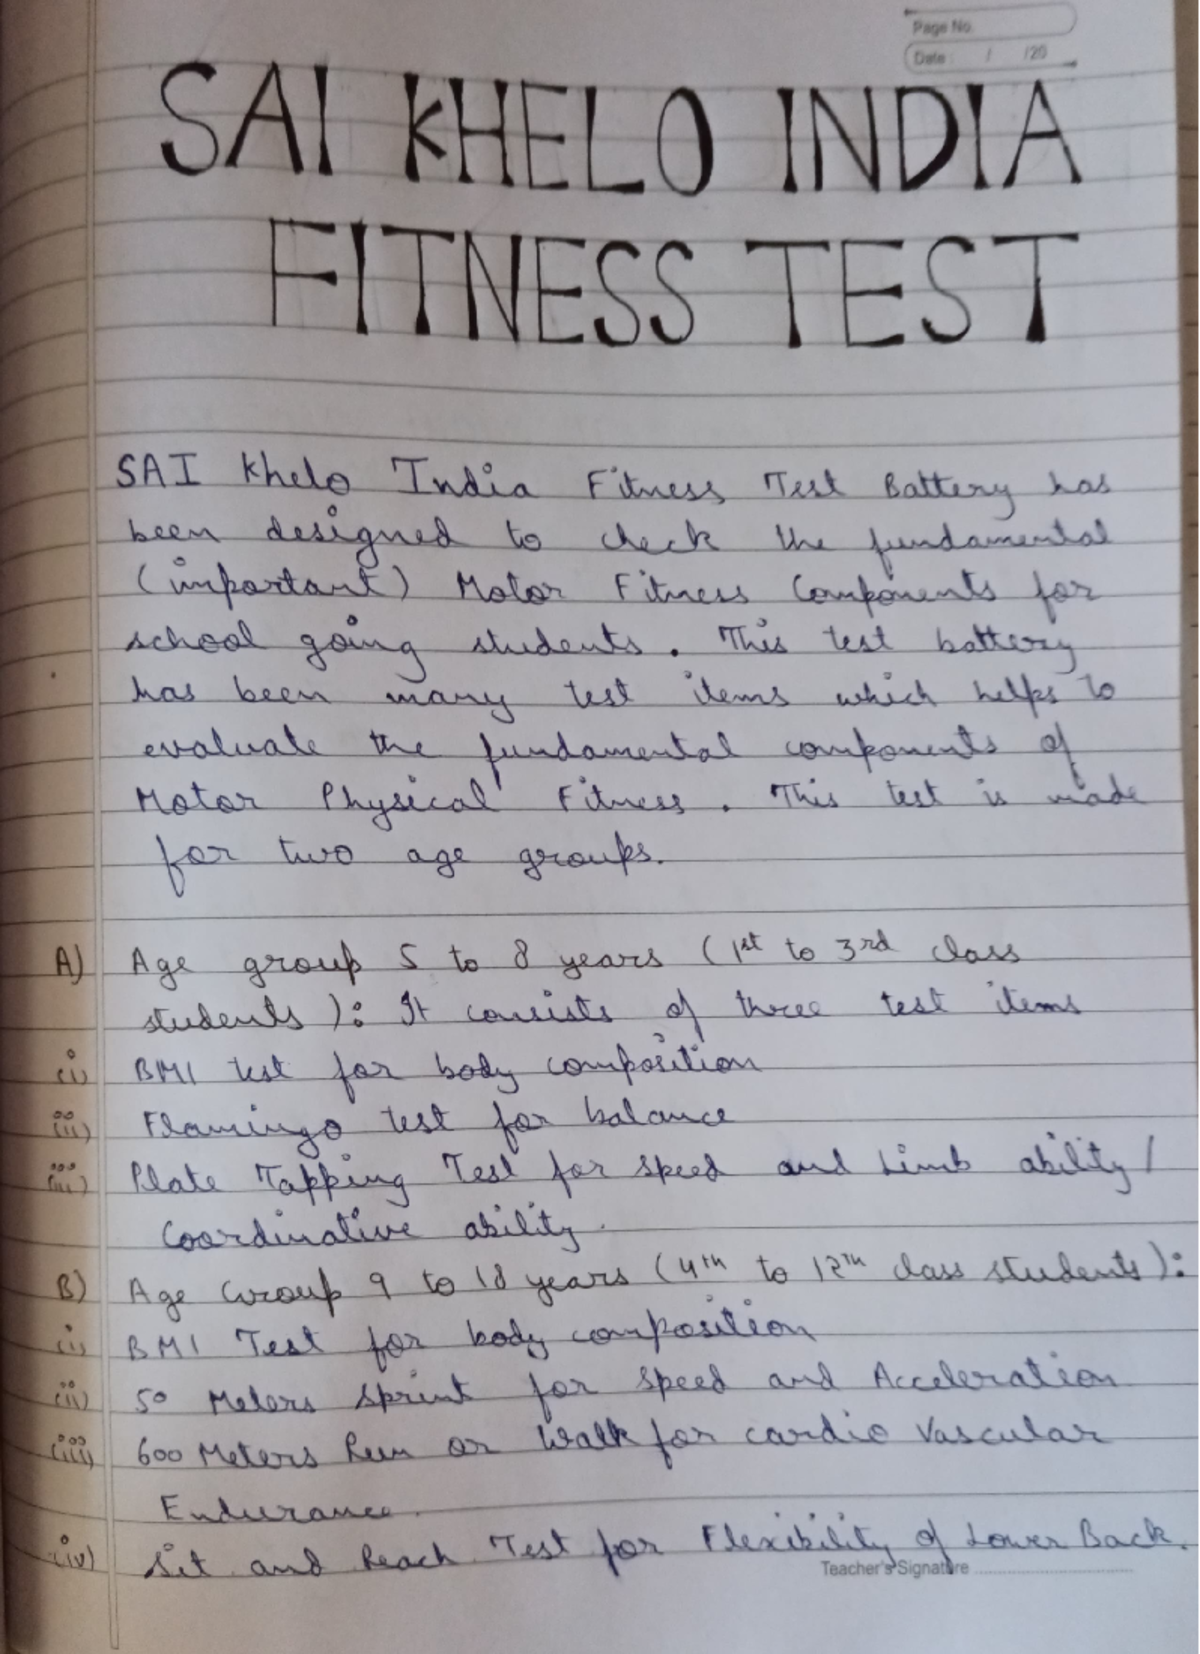 Page No.
Date : / /20
SAI KHELO INDIA
FITNESS TEST
SAI Khelo India Fitness Test Battery has
been designed to check the fundamental
(important) Motor Fitness Components for
school going students. This test battery
has been many test items which helps to
evaluate the fundamental components of
Motor Physical Fitness. This test is made
for two age groups.
A) Age group 5 to 8 years (1st to 3rd class
students): It consists of three test items
(i) BMI test for body composition
(ii) Flamingo test for balance
(iii) Plate Tapping Test for Speed and Limb ability/
Coordinative ability.
B) Age Group 9 to 18 years (4th to 12th class students):
(i) BMI Test for body composition
(ii) 50 Meters Sprint for Speed and Acceleration
(iii) 600 Meters Run or Walk for cardio Vascular
Endurance.
(iv) Sit and Reach Test for Flexibility of Lower Back.
Teacher's Signature